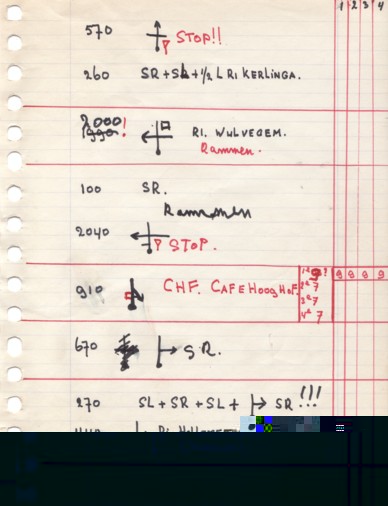 1 2 3 4
570 STOP!!
260 SR + SL + ½ L RI KERLINGA.
2000!
RI. WULVEGEM.
Rammen.
100 SR.
Rammmen
2040
STOP.
910 CHF. CAFE HoogHof.
1e 9?
2e 7
3e 7
4e 7
9 9 9 9
670 SR.
270 SL + SR + SL + SR !!!